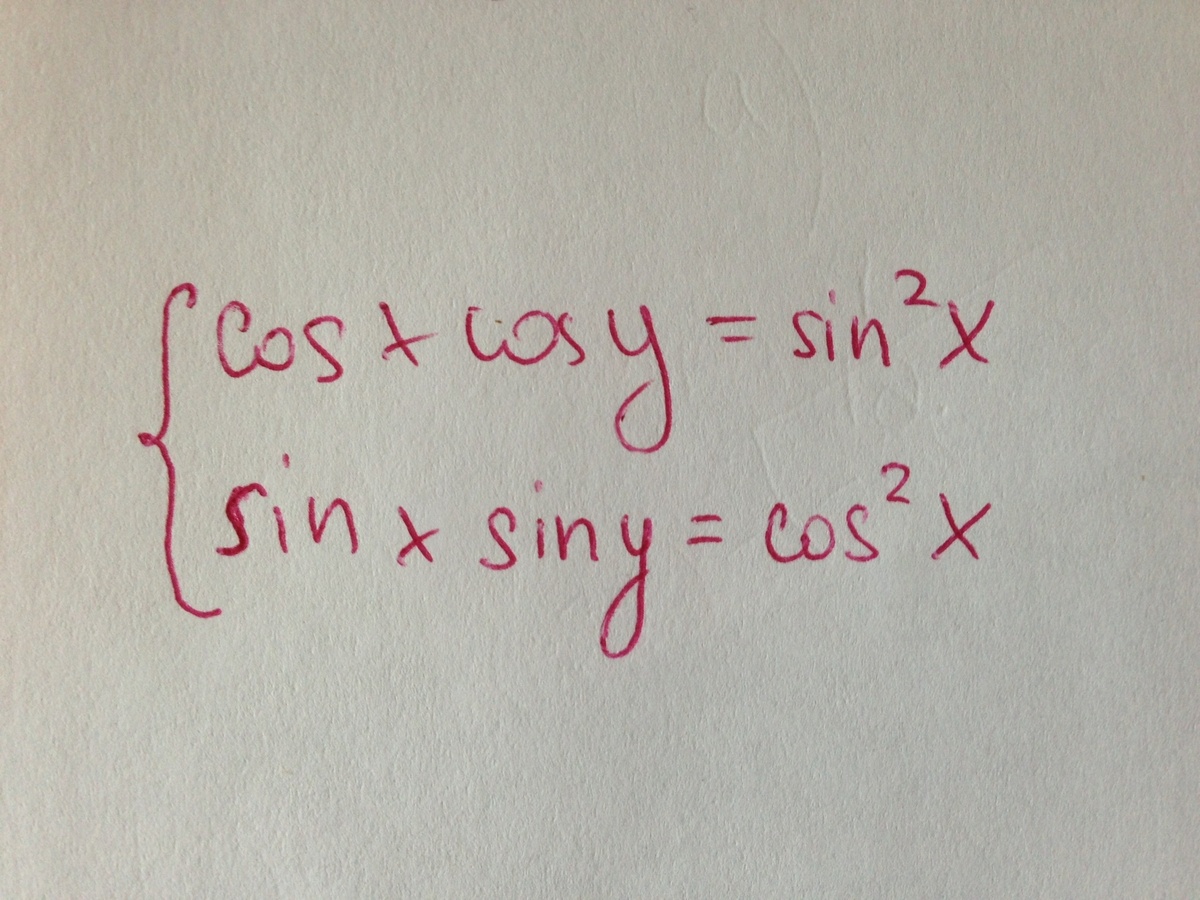 cos x cos y = sin²x
sin x sin y = cos²x